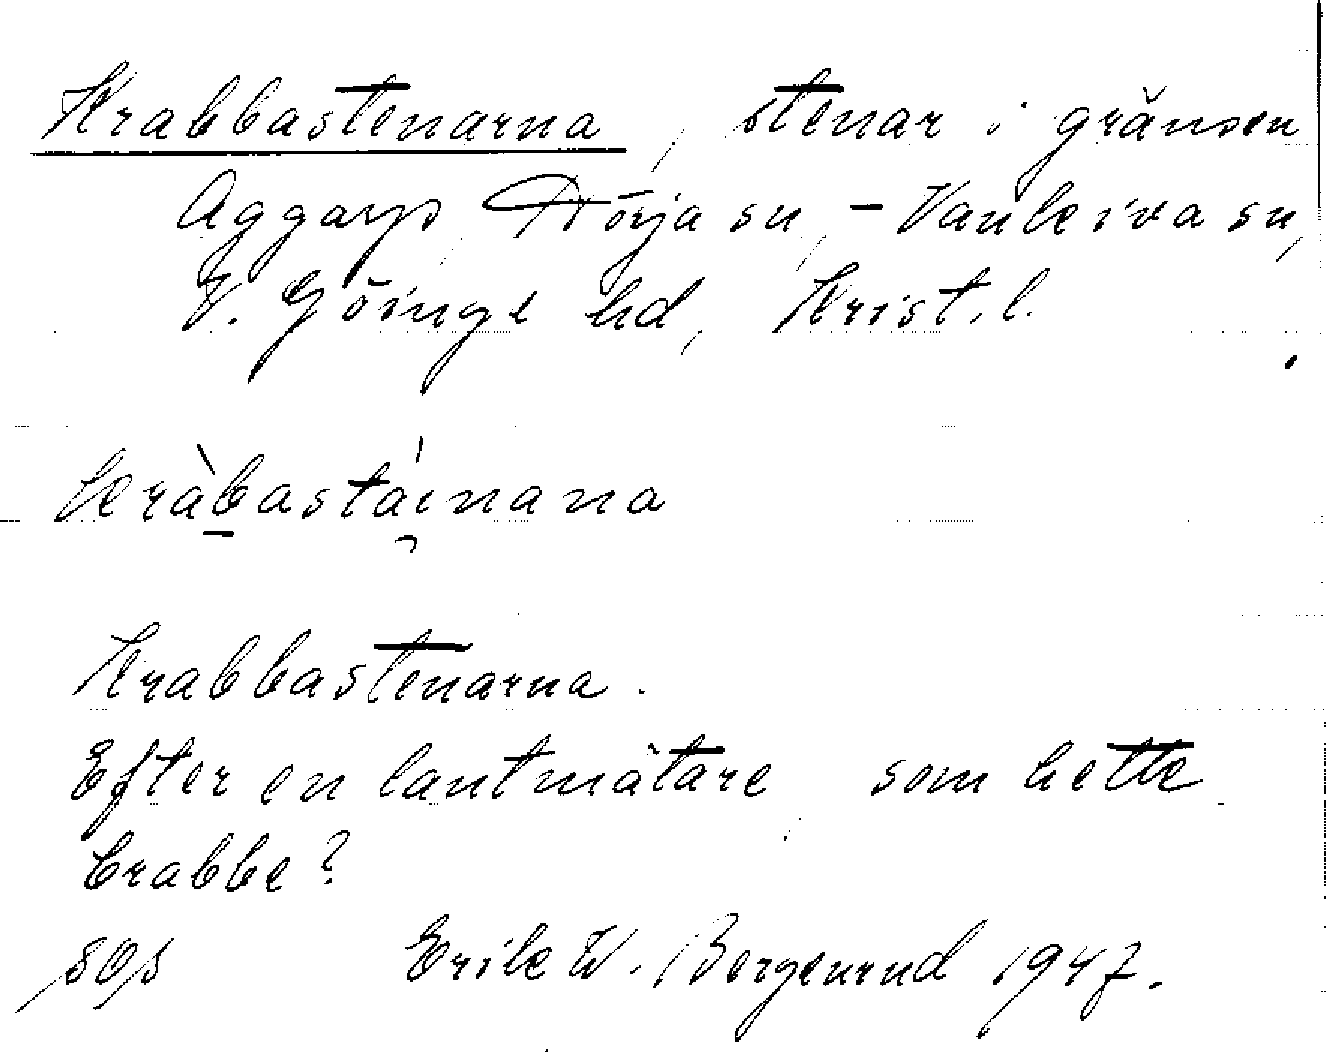 Krabbastenarna, stenar i gränsen
Aggarp, Norja sn, – Vankiva sn,
V. Göinge hd, Krist. l.
kràbastáinana
Krabbastenarna.
Efter en lantmätare, som hette
Crabbe?
Erik W. Bergenrud 1947.